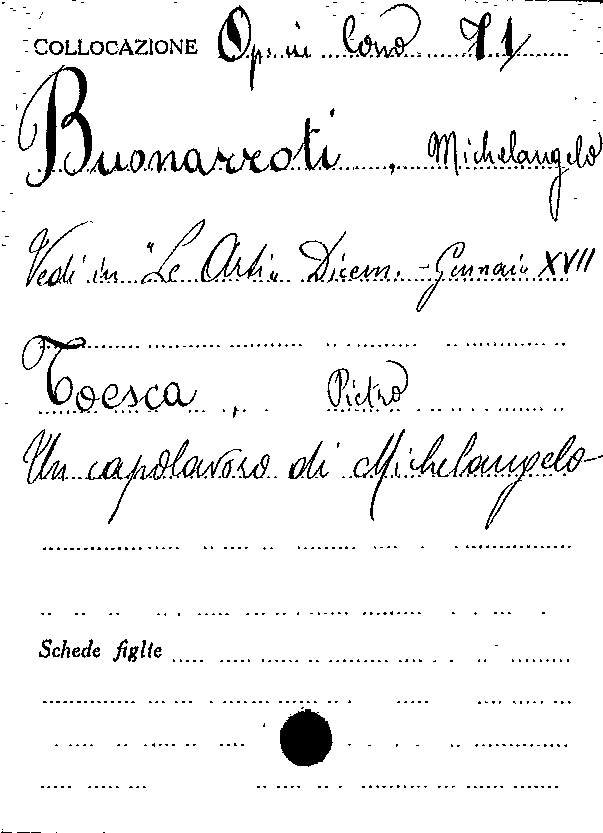 COLLOCAZIONE Op. in Cons 71
Buonarroti, Michelangelo
Vedi in "Le Arti" Dicem. - Gennaio XVII
Toesca, Pietro
Un capolavoro di Michelangelo
Schede figlie